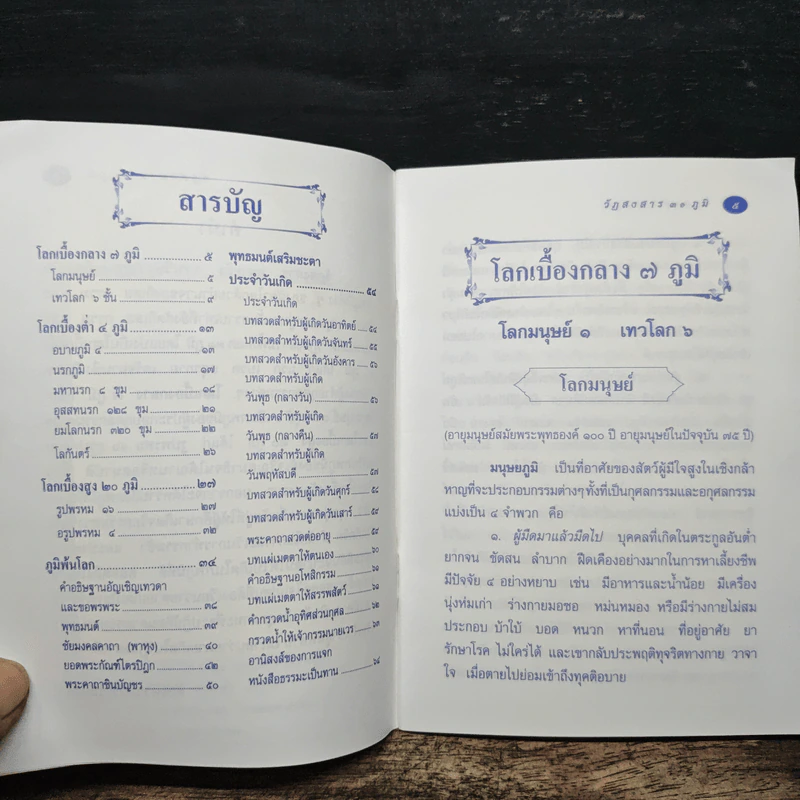 สารบัญ
โลกเบื้องกลาง ๗ ภูมิ ................... ๕
โลกมนุษย์ ................... ๕
เทวโลก ๖ ชั้น ................... ๙
โลกเบื้องต่ำ ๔ ภูมิ ................... ๑๓
อบายภูมิ ๔ ................... ๑๓
นรกภูมิ ................... ๑๗
มหานรก ๘ ขุม ................... ๑๘
อุสสทนรก ๑๒๘ ขุม ................... ๒๑
ยมโลกนรก ๓๒๐ ขุม ................... ๒๒
โลกันตร์ ................... ๒๖
โลกเบื้องสูง ๒๐ ภูมิ ................... ๒๗
รูปพรหม ๑๖ ................... ๒๗
อรูปพรหม ๔ ................... ๓๒
ภูมิพ้นโลก ................... ๓๔
คำอธิษฐานอัญเชิญเทวดา
และขอพรพระ ................... ๓๘
พุทธมนต์ ................... ๓๙
ชัยมงคลคาถา (พาหุง) ................... ๔๐
ยอดพระกัณฑ์ไตรปิฎก ................... ๔๒
พระคาถาชินบัญชร ................... ๕๐
พุทธมนต์เสริมชะตา
ประจำวันเกิด ................... ๕๔
ประจำวันเกิด
บทสวดสำหรับผู้เกิดวันอาทิตย์ ..... ๕๔
บทสวดสำหรับผู้เกิดวันจันทร์ ..... ๕๕
บทสวดสำหรับผู้เกิดวันอังคาร ..... ๕๖
บทสวดสำหรับผู้เกิด
วันพุธ (กลางวัน) ................... ๕๖
บทสวดสำหรับผู้เกิด
วันพุธ (กลางคืน) ................... ๕๗
บทสวดสำหรับผู้เกิด
วันพฤหัสบดี ................... ๕๗
บทสวดสำหรับผู้เกิดวันศุกร์ ..... ๕๘
บทสวดสำหรับผู้เกิดวันเสาร์ ..... ๕๙
พระคาถาสวดต่ออายุ ................... ๕๙
บทแผ่เมตตาให้ตนเอง ................... ๖๐
คำอธิษฐานอโหสิกรรม ................... ๖๑
บทแผ่เมตตาให้สรรพสัตว์ ................... ๖๑
คำกรวดน้ำอุทิศส่วนกุศล ................... ๖๒
กรวดน้ำให้เจ้ากรรมนายเวร ................... ๖๓
อานิสงส์ของการแจก
หนังสือธรรมะเป็นทาน ................... ๖๔
วัฏสงสาร ๓๑ ภูมิ ๕
โลกเบื้องกลาง ๗ ภูมิ
โลกมนุษย์ ๑ เทวโลก ๖
โลกมนุษย์
(อายุมนุษย์สมัยพระพุทธองค์ ๑๐๐ ปี อายุมนุษย์ในปัจจุบัน ๗๕ ปี)
มนุษยภูมิ เป็นที่อาศัยของสัตว์ผู้มีใจสูงในเชิงกล้า
หาญที่จะประกอบกรรมต่างๆ ทั้งที่เป็นกุศลกรรมและอกุศลกรรม
แบ่งเป็น ๔ จำพวก คือ
๑. ผู้มืดมาแล้วมืดไป บุคคลที่เกิดในตระกูลอันต่ำ
ยากจน ขัดสน ลำบาก ฝืดเคืองอย่างมากในการหาเลี้ยงชีพ
มีปัจจัย ๔ อย่างหยาบ เช่น มีอาหารและน้ำน้อย มีเครื่อง
นุ่งห่มเก่า ร่างกายมอซอ หม่นหมอง หรือมีร่างกายไม่สม
ประกอบ บ้าใบ้ บอด หนวก หาที่นอน ที่อยู่อาศัย ยา
รักษาโรค ไม่ใคร่ได้ และเขากลับประพฤติทุจริตทางกาย วาจา
ใจ เมื่อตายไปย่อมเข้าถึงทุคติอบาย